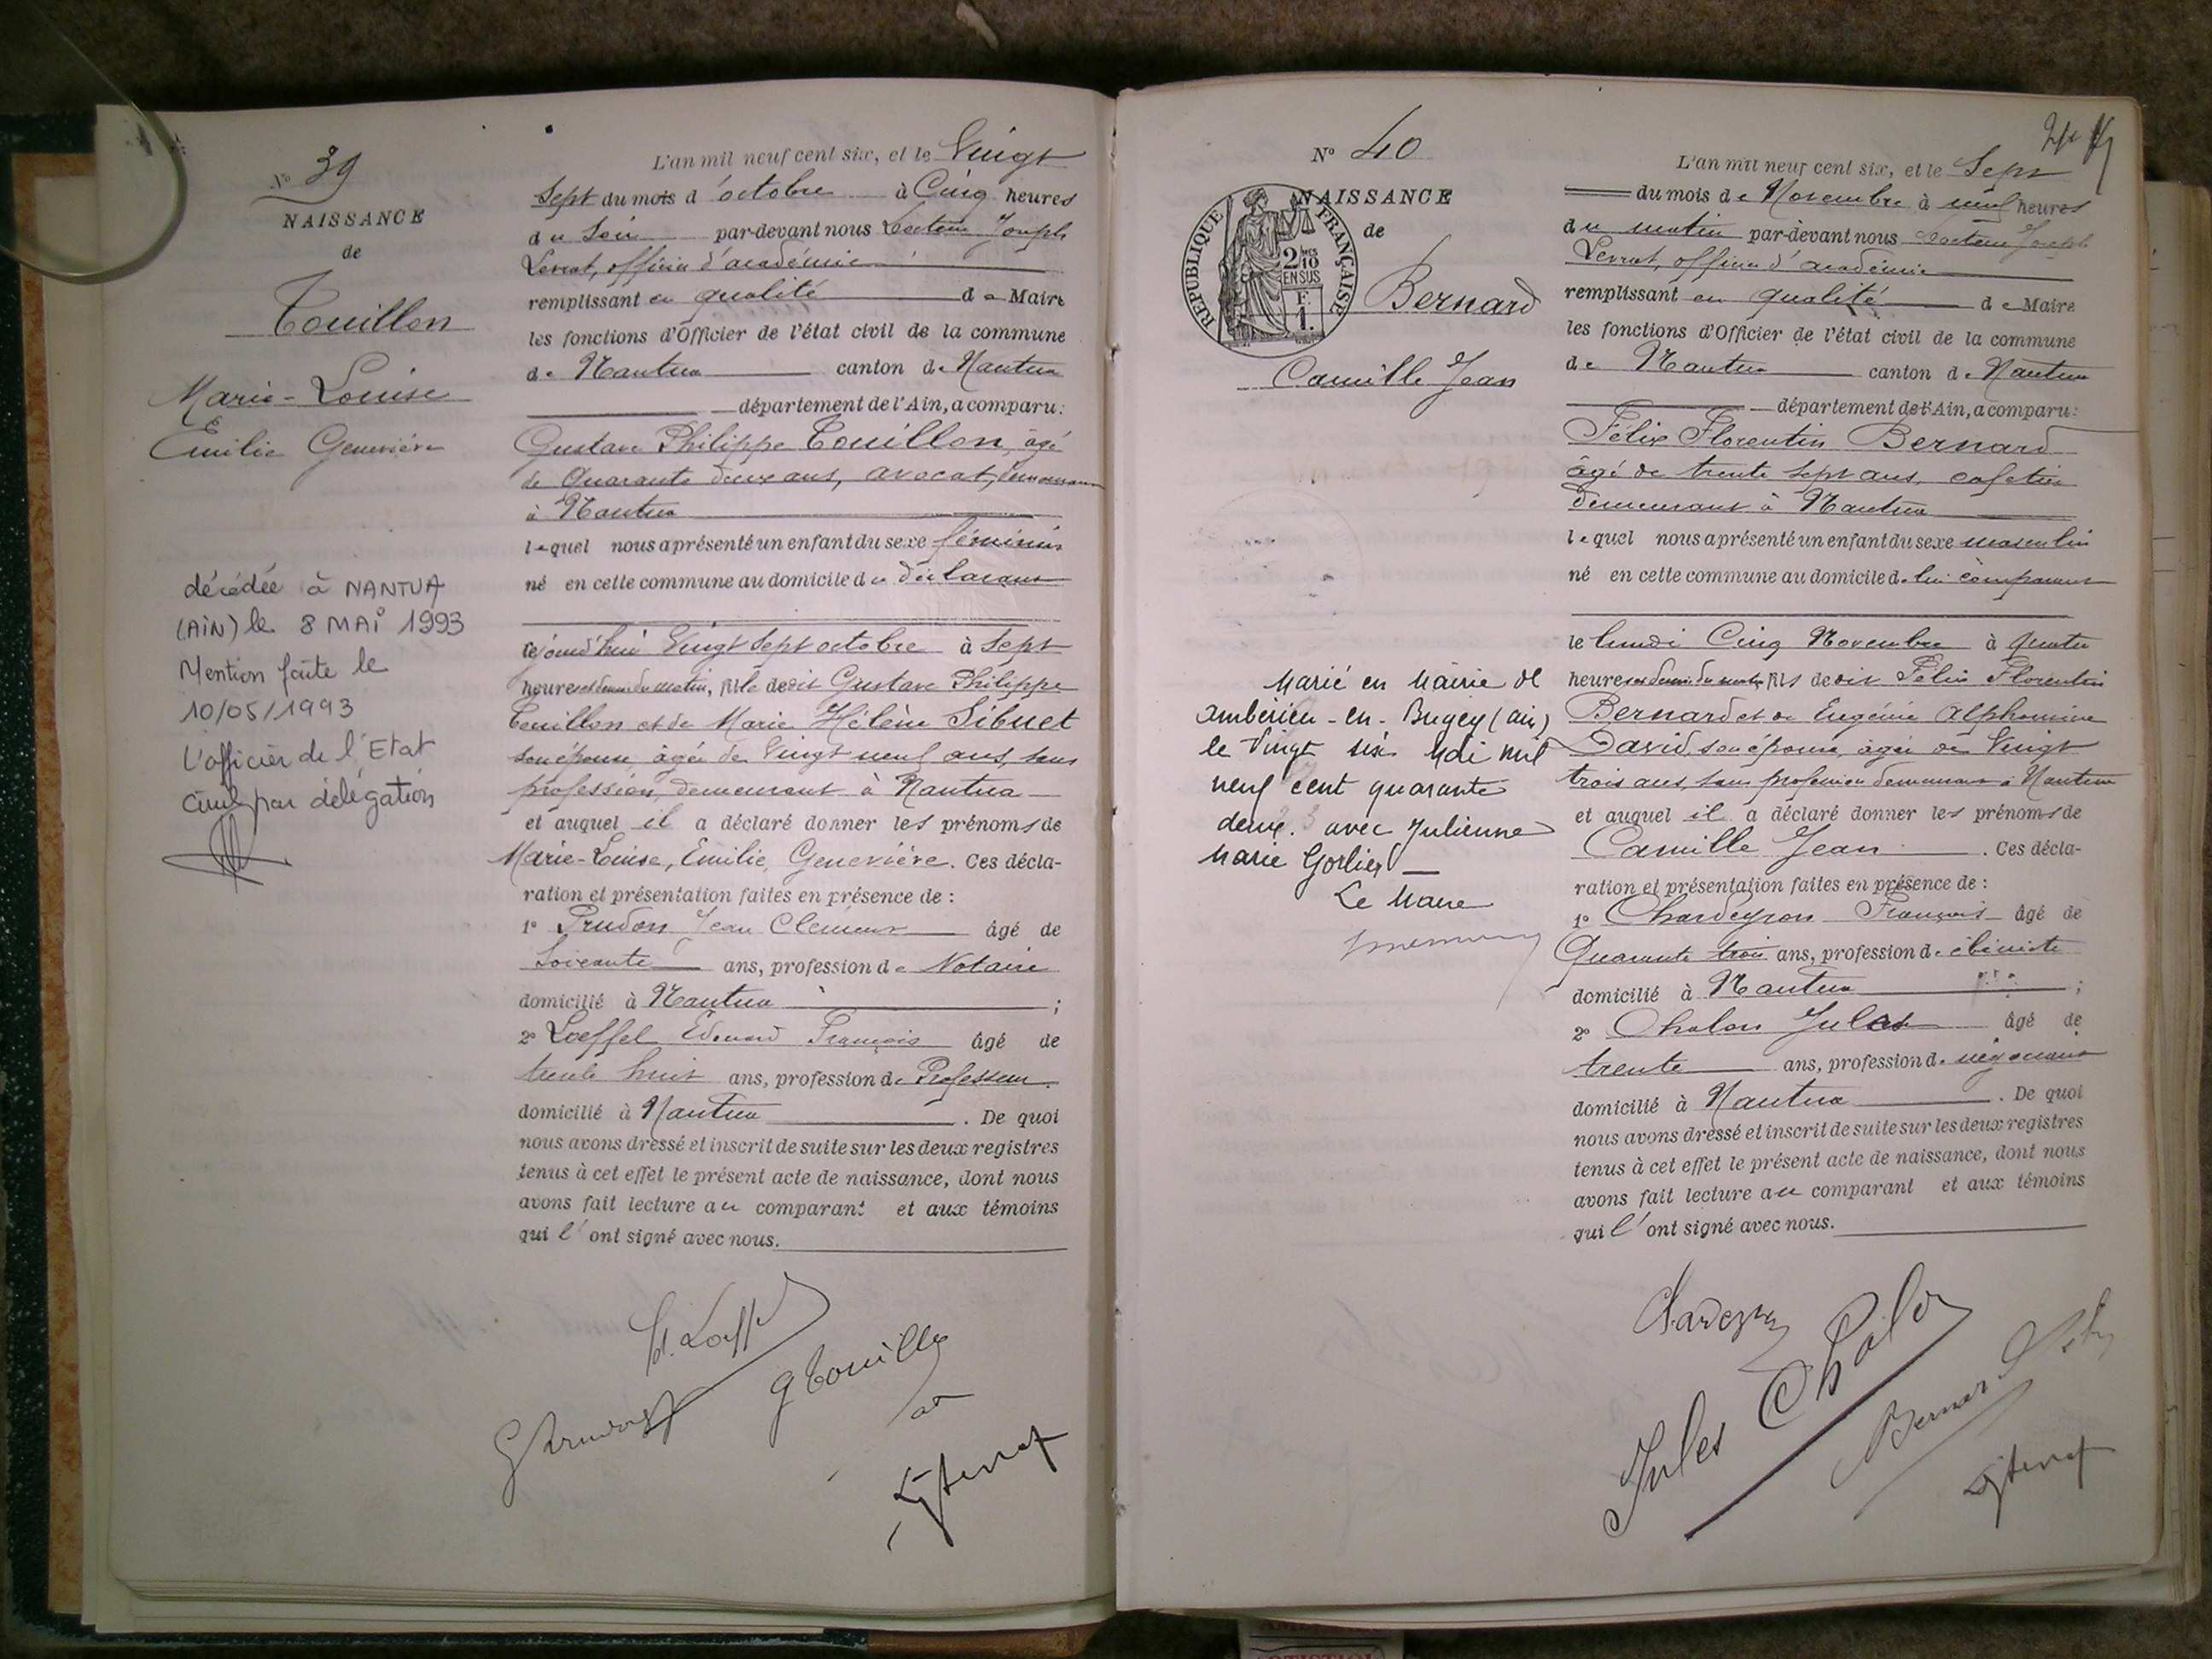 N° 39
NAISSANCE
de
Touillon
Marie-Louise
Emilie Geneviève
décédée à NANTUA
(AIN) le 8 MAI 1993
Mention faite le
10/05/1993
L'officier de l'Etat
Civil par délégation
L'an mil neuf cent six, et le Vingt
Sept du mois d'octobre à Cinq heures
du Soir par-devant nous Docteur Joseph
Levrat, officier d'académie
remplissant en qualité de Maire
les fonctions d'Officier de l'état civil de la commune
de Nantua canton de Nantua
département de l'Ain, a comparu:
Gustave Philippe Touillon, âgé
de Quarante deux ans, avocat, demeurant
à Nantua
lequel nous a présenté un enfant du sexe féminin
né en cette commune au domicile du déclarant
cejourd'hui Vingt Sept octobre à Sept
heures et demie du matin, fille de dit Gustave Philippe
Touillon et de Marie Hélène Sibuet
son épouse, âgée de Vingt neuf ans, sans
profession, demeurant à Nantua
et auquel il a déclaré donner les prénoms de
Marie-Louise, Emilie, Geneviève. Ces décla-
ration et présentation faites en présence de :
1° Prudon Jean Clément âgé de
Soixante ans, profession de Notaire
domicilié à Nantua ;
2° Loeffel Edouard François âgé de
trente huit ans, profession de Professeur
domicilié à Nantua . De quoi
nous avons dressé et inscrit de suite sur les deux registres
tenus à cet effet le présent acte de naissance, dont nous
avons fait lecture au comparant et aux témoins
qui l'ont signé avec nous.
N° 40
NAISSANCE
de
RÉPUBLIQUE FRANÇAISE
2/10 EN SUS
F. 1.
Bernard
Camille Jean
Marié en Mairie de
Ambérieu-en-Bugey (ain)
le Vingt six Mai mil
neuf cent quarante
deux. avec Julienne
Marie Gorlier
Le Maire
L'an mil neuf cent six, et le Sept
du mois de Novembre à neuf heures
du matin par-devant nous Docteur Joseph
Levrat, officier d'académie
remplissant en qualité de Maire
les fonctions d'Officier de l'état civil de la commune
de Nantua canton de Nantua
département de l'Ain, a comparu:
Félix Florentin Bernard
âgé de trente sept ans, cafetier
demeurant à Nantua
lequel nous a présenté un enfant du sexe masculin
né en cette commune au domicile de lui comparant
le lundi Cinq Novembre à quatre
heures et demie du matin fils de dit Félix Florentin
Bernard et de Eugénie Alphonsine
David, son épouse, âgée de Vingt
trois ans, sans profession demeurant à Nantua
et auquel il a déclaré donner les prénoms de
Camille Jean . Ces décla-
ration et présentation faites en présence de :
1° Chardeyron François âgé de
Quarante trois ans, profession d'ébéniste
domicilié à Nantua ;
2° Chalon Jules âgé de
trente ans, profession de négociant
domicilié à Nantua . De quoi
nous avons dressé et inscrit de suite sur les deux registres
tenus à cet effet le présent acte de naissance, dont nous
avons fait lecture au comparant et aux témoins
qui l'ont signé avec nous.
Jules Chalon